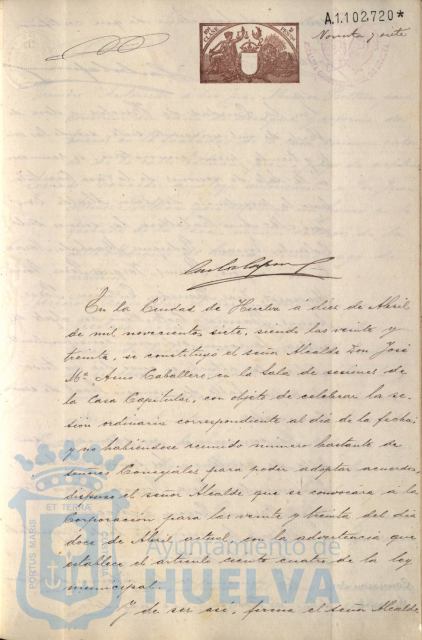 A.1.102.720*
Noventa y siete
En la Ciudad de Huelva á diez de Abril
de mil novecientos siete, siendo las veinte y
treinta, se constituyó el señor Alcalde Don José
Mª Amo Caballero, en la Sala de sesiones de
la Casa Capitular, con objeto de celebrar la se-
sión ordinaria correspondiente al día de la fecha;
y no habiéndose reunido número bastante de
señores Concejales para poder adoptar acuerdos,
dispuso el señor Alcalde que se convocara á la
Corporación para las veinte y treinta del día
doce de Abril actual, con la advertencia que
establece el artículo ciento cuatro de la ley
municipal.
Y de ser así, firma el señor Alcalde
PORTUS MARIS
ET TERRÆ
Ayuntamiento de
HUELVA